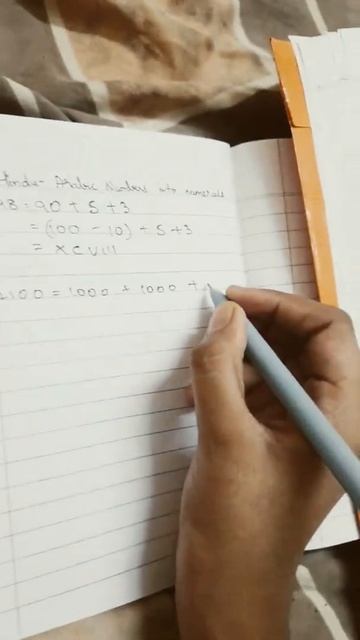 Hindu-Arabic Numbers into numerals
98 = 90 + 5 + 3
= (100 - 10) + 5 + 3
= XCVIII
2100 = 1000 + 1000 +